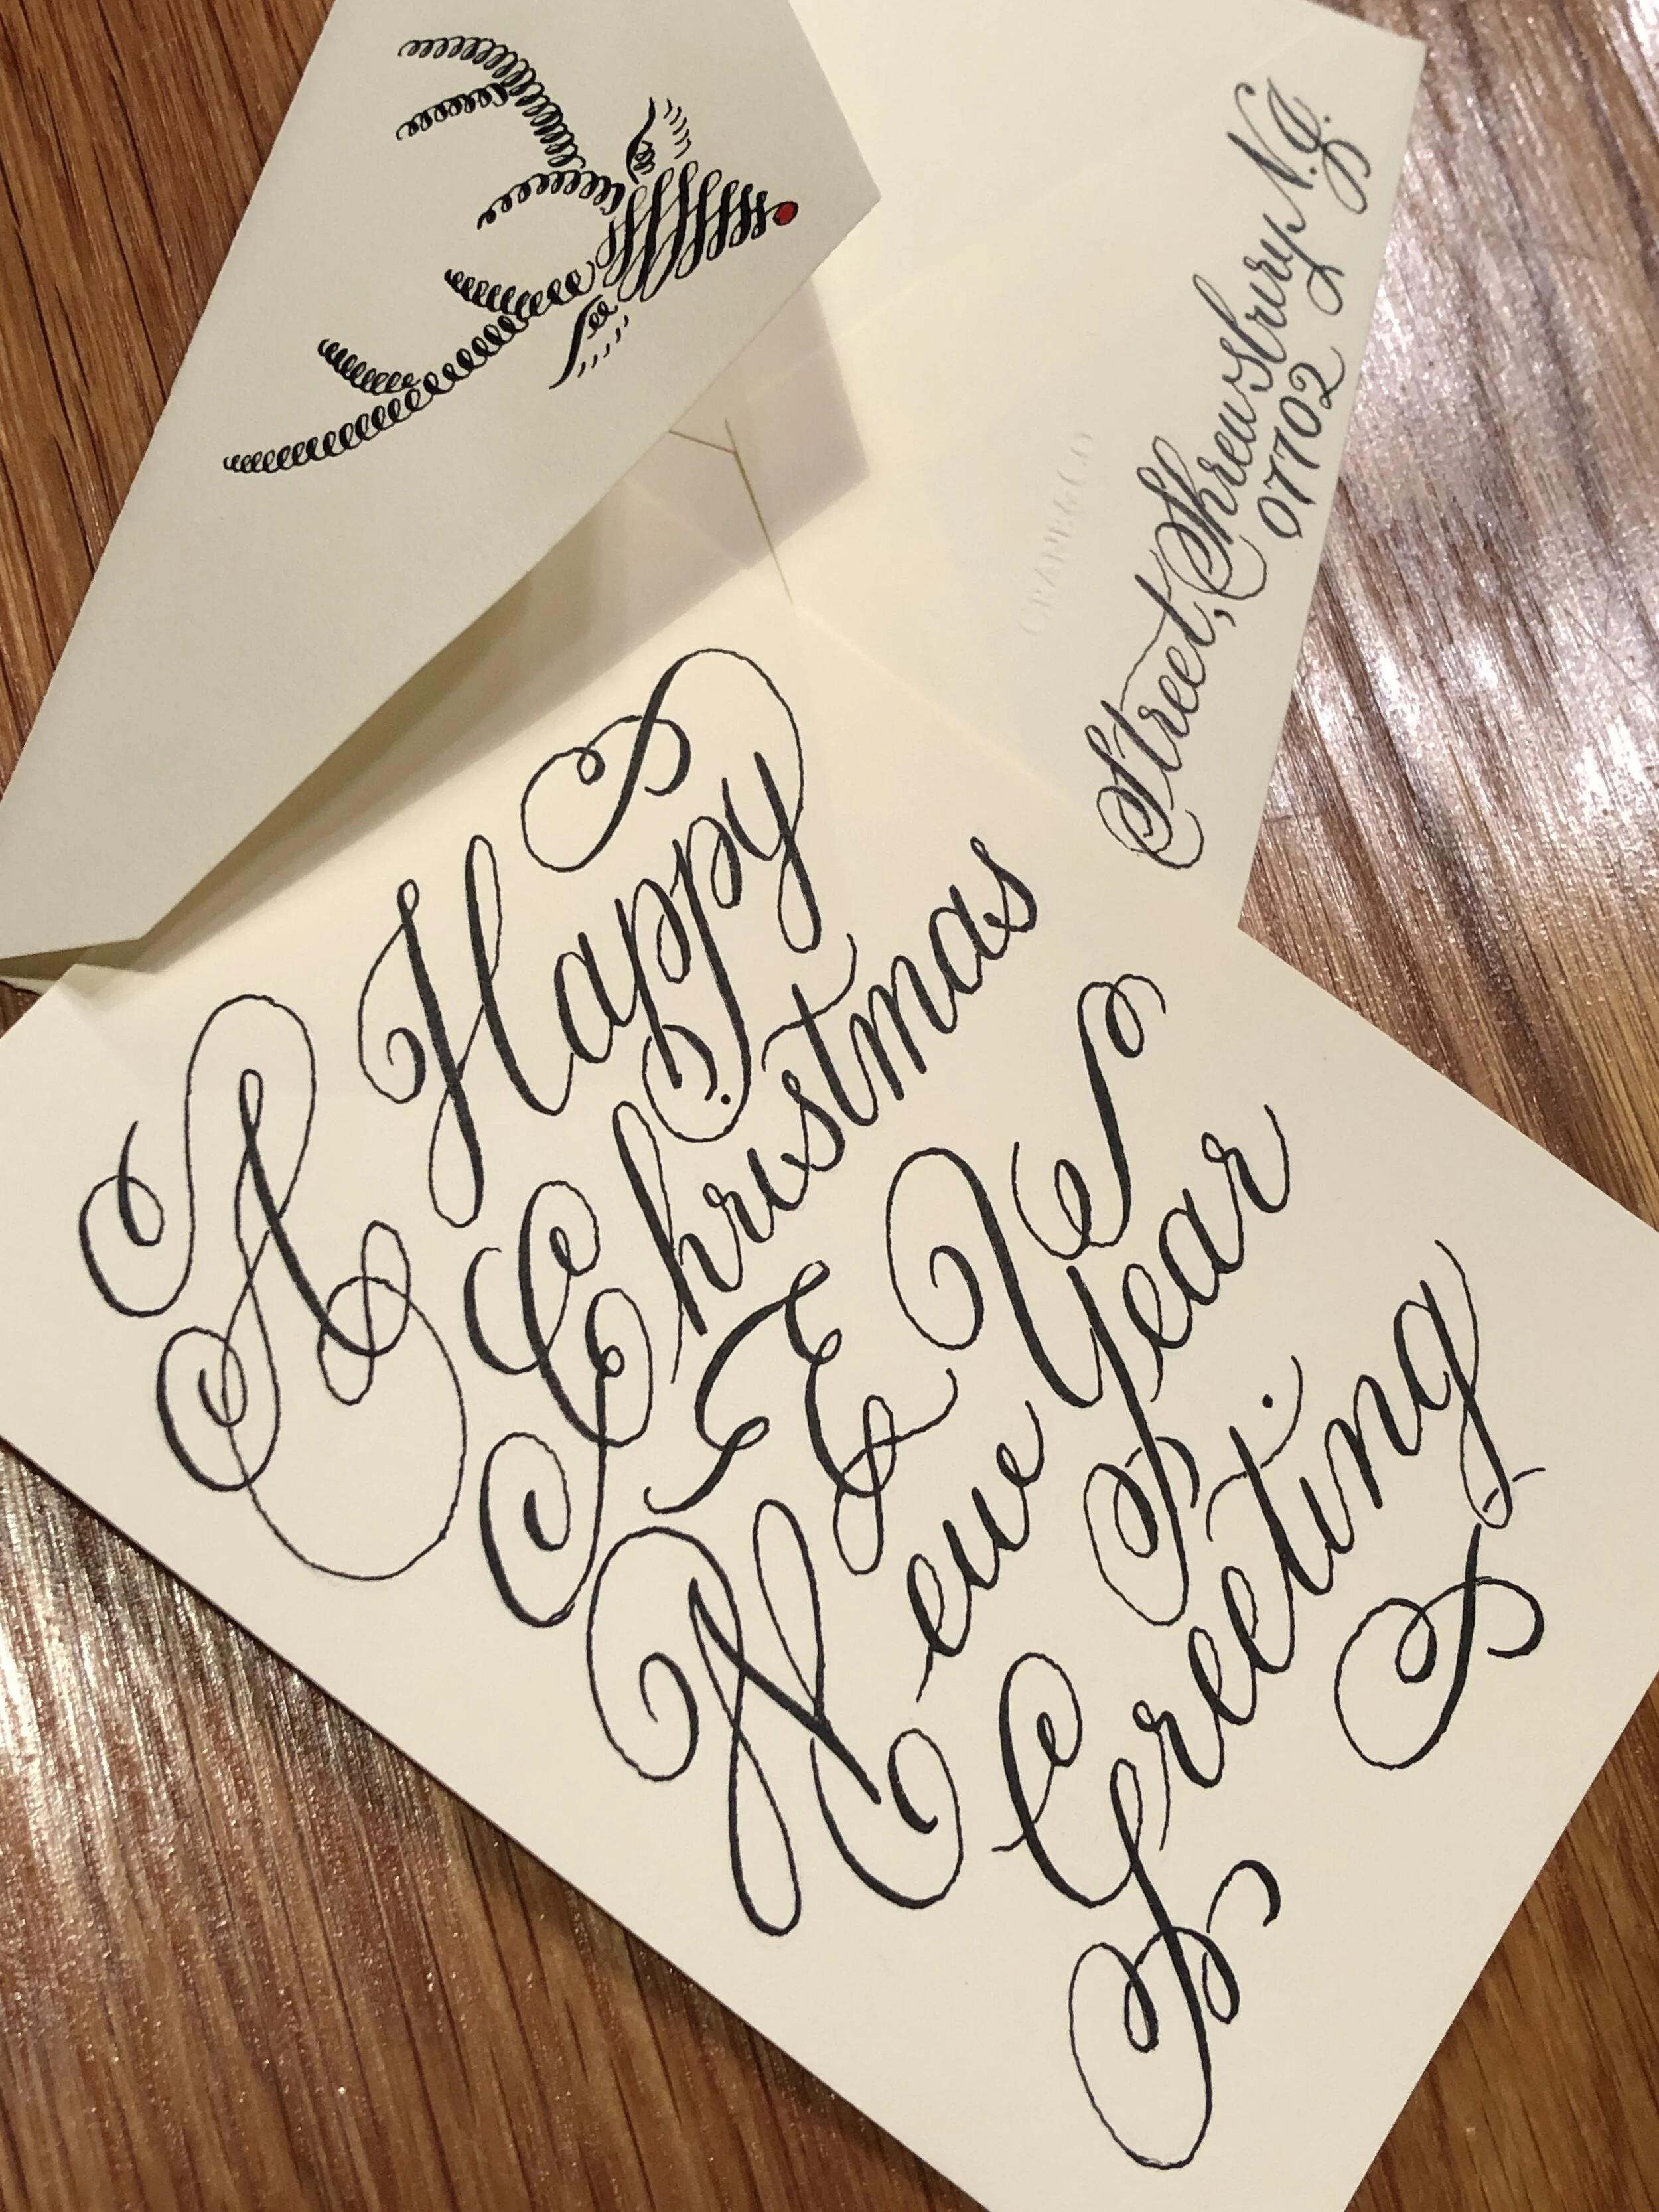 A Happy
Christmas
&
New Year
Greeting
Street, Shrewsbury N.J.
07702
CRANE & CO